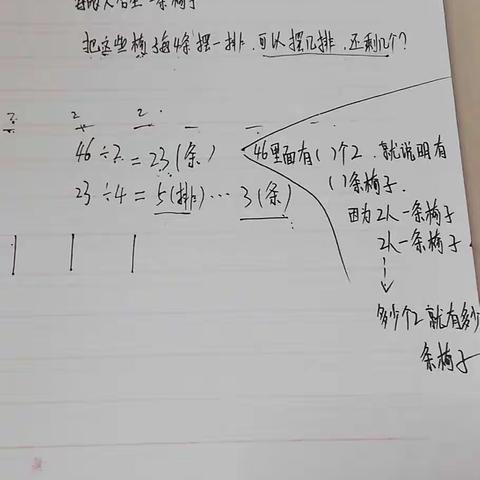 每2人合坐一条椅子
把这些椅子每4条摆一排,可以摆几排,还剩几个?
2 2 2
46÷2=23(条)
23÷4=5(排)…3(条)
46里面有( )个2,就说明有
( )条椅子.
因为2人一条椅子
2人一条椅子
多少个2就有多少
条椅子